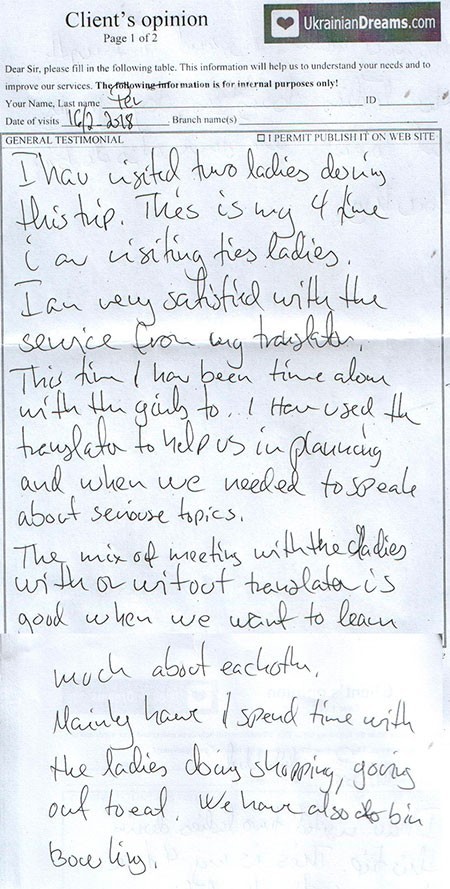 Client's opinion
Page 1 of 2
UkrainianDreams.com
Dear Sir, please fill in the following table. This information will help us to understand your needs and to
improve our services. The following information is for internal purposes only!
Your Name, Last name ID
Date of visits 16/2-2018 Branch name(s)
GENERAL TESTIMONIAL I PERMIT PUBLISH IT ON WEB SITE
I hav visited two ladies dering
this trip. Thies is my 4 time
i am visiting ties ladies.
I am very satisfied with the
service from my translator.
This tim I hav been time alon
with the girls to.. I Have used the
translator to help us in planning
and when we needed to speak
about seriouse topics.
The mix of meeting with the ladies
with or witout translator is
good when we want to learn
much about eachother.
Mainly have I spend time with
the ladies doing shopping, going
out to eat. We have also bin
Bowling.